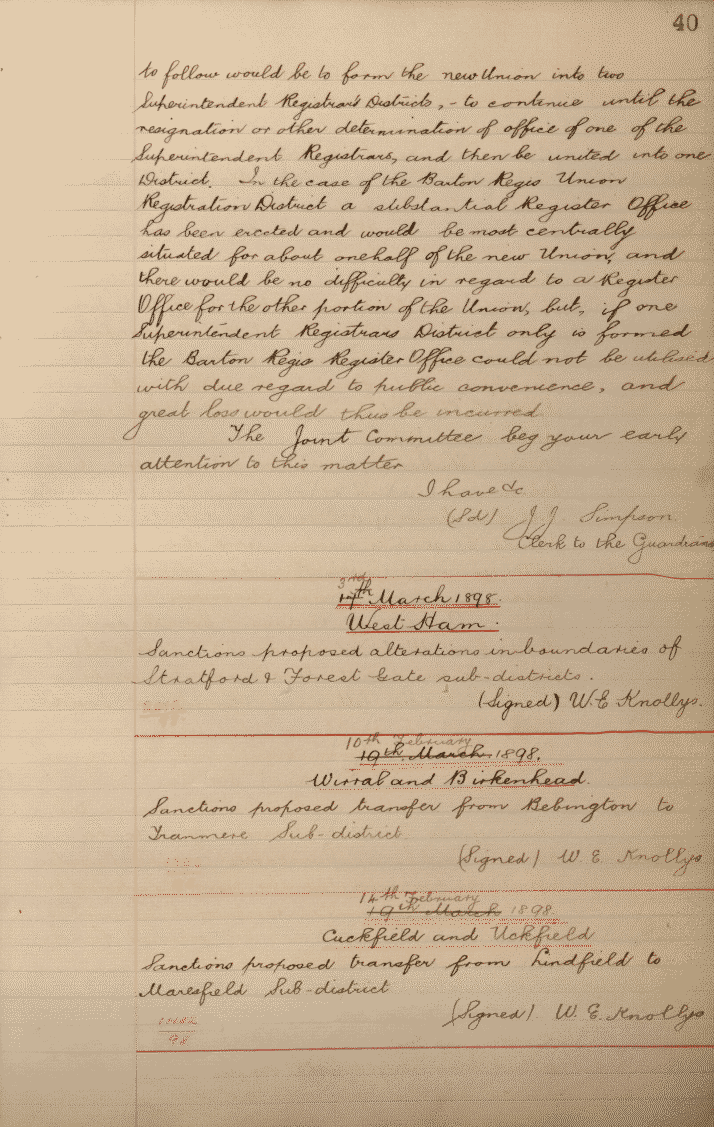 40
to follow would be to form the new Union into two
Superintendent Registrar's Districts, - to continue until the
resignation or other determination of office of one of the
Superintendent Registrars, and then be united into one
District. In the case of the Barton Regis Union
Registration District a substantial Register Office
has been erected and would be most centrally
situated for about one half of the new Union, and
there would be no difficulty in regard to a Register
Office for the other portion of the Union, but, if one
Superintendent Registrars District only is formed
the Barton Regis Register Office could not be utilised
with due regard to public convenience, and
great loss would thus be incurred
The Joint Committee beg your early
attention to this matter
I have &c
(Sd) J. J. Simpson
Clerk to the Guardians
3rd
17th March 1898.
West Ham.
Sanctions proposed alterations in boundaries of
Stratford & Forest Gate sub-districts.
(Signed) W. E. Knollys.
10th February
19th March 1898.
Wirral and Birkenhead.
Sanctions proposed transfer from Bebington to
Tranmere Sub-district.
(Signed) W. E. Knollys
14th February
19th March 1898
Cuckfield and Uckfield
Sanctions proposed transfer from Lindfield to
Maresfield Sub-district
(Signed). W. E. Knollys
98